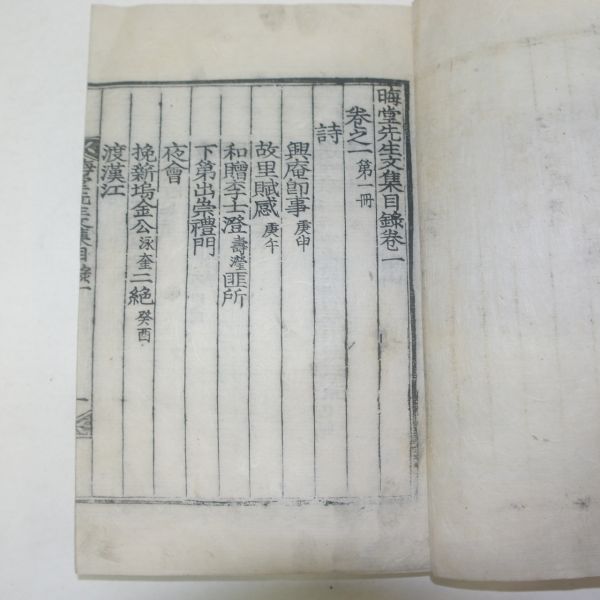 晦堂先生文集目錄卷一
卷之一 第一冊
詩
興庵即事 庚申
故里賦感 庚午
和贈李士澄 壽瀅 匪所
下第出崇禮門
夜會
挽新塢金公 泳奎 二絶 癸酉
渡漢江
晦堂先生文集目錄 一